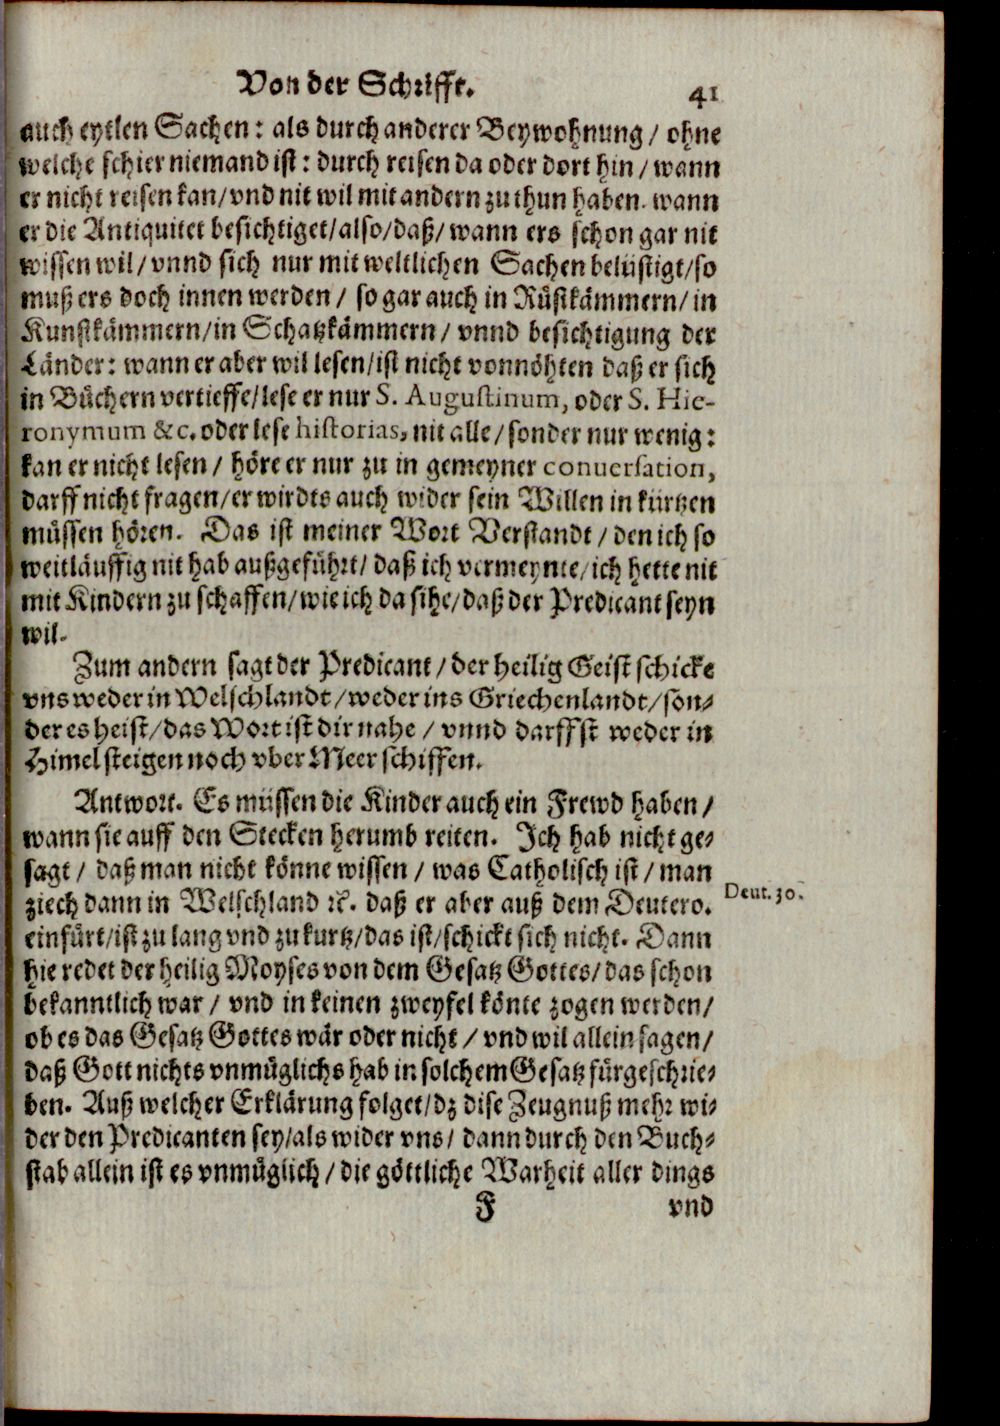 Von der Schrifft.
41
auch eytlen Sachen: als durch anderer Beywohnung / ohne
welche schier niemand ist: durch reisen da oder dort hin / wann
er nicht reisen kan/vnd nit wil mit andern zu thun haben. wann
er die Antiquitet besichtiget/also/daß/wann ers schon gar nit
wissen wil/vnnd sich nur mit weltlichen Sachen belüstigt/so
muß ers doch innen werden / so gar auch in Rüstkämmern/in
Kunstkämmern/in Schatzkämmern/ vnnd besichtigung der
Länder: wann er aber wil lesen/ist nicht vonnöhten daß er sich
in Büchern vertieffe/lese er nur S. Augustinum, oder S. Hie-
ronymum &c. oder lese historias, nit alle/sonder nur wenig:
kan er nicht lesen / höre er nur zu in gemeyner conuersation,
darff nicht fragen/er wirdts auch wider sein Willen in kürtzen
müssen hören. Das ist meiner Wort Verstandt / den ich so
weitläuffig nit hab außgeführt/ daß ich vermeynte/ich hette nit
mit Kindern zu schaffen/wie ich da sihe/daß der Predicant seyn
wil.
Zum andern sagt der Predicant / der heilig Geist schicke
vns weder in Welschlandt/weder ins Griechenlandt/son-
der es heist/das Wort ist dir nahe / vnnd darffst weder in
Himel steigen noch vber Meer schiffen.
Antwort. Es müssen die Kinder auch ein Frewd haben /
wann sie auff den Stecken herumb reiten. Ich hab nicht ge-
sagt / daß man nicht könne wissen / was Catholisch ist / man
ziech dann in Welschland ꝛc. daß er aber auß dem Deutero.
einfürt/ist zu lang vnd zu kurtz/das ist/schickt sich nicht. Dann
hie redet der heilig Moyses von dem Gesatz Gottes/das schon
bekanntlich war / vnd in keinen zweyfel könte zogen werden/
ob es das Gesatz Gottes wär oder nicht / vnd wil allein sagen/
daß Gott nichts vnmüglichs hab in solchem Gesatz fürgeschrie-
ben. Auß welcher Erklärung folget/dz dise Zeugnuß mehr wi-
der den Predicanten sey/als wider vns/ dann durch den Buch-
stab allein ist es vnmüglich / die göttliche Warheit aller dings
F
vnd
Deut. 30.